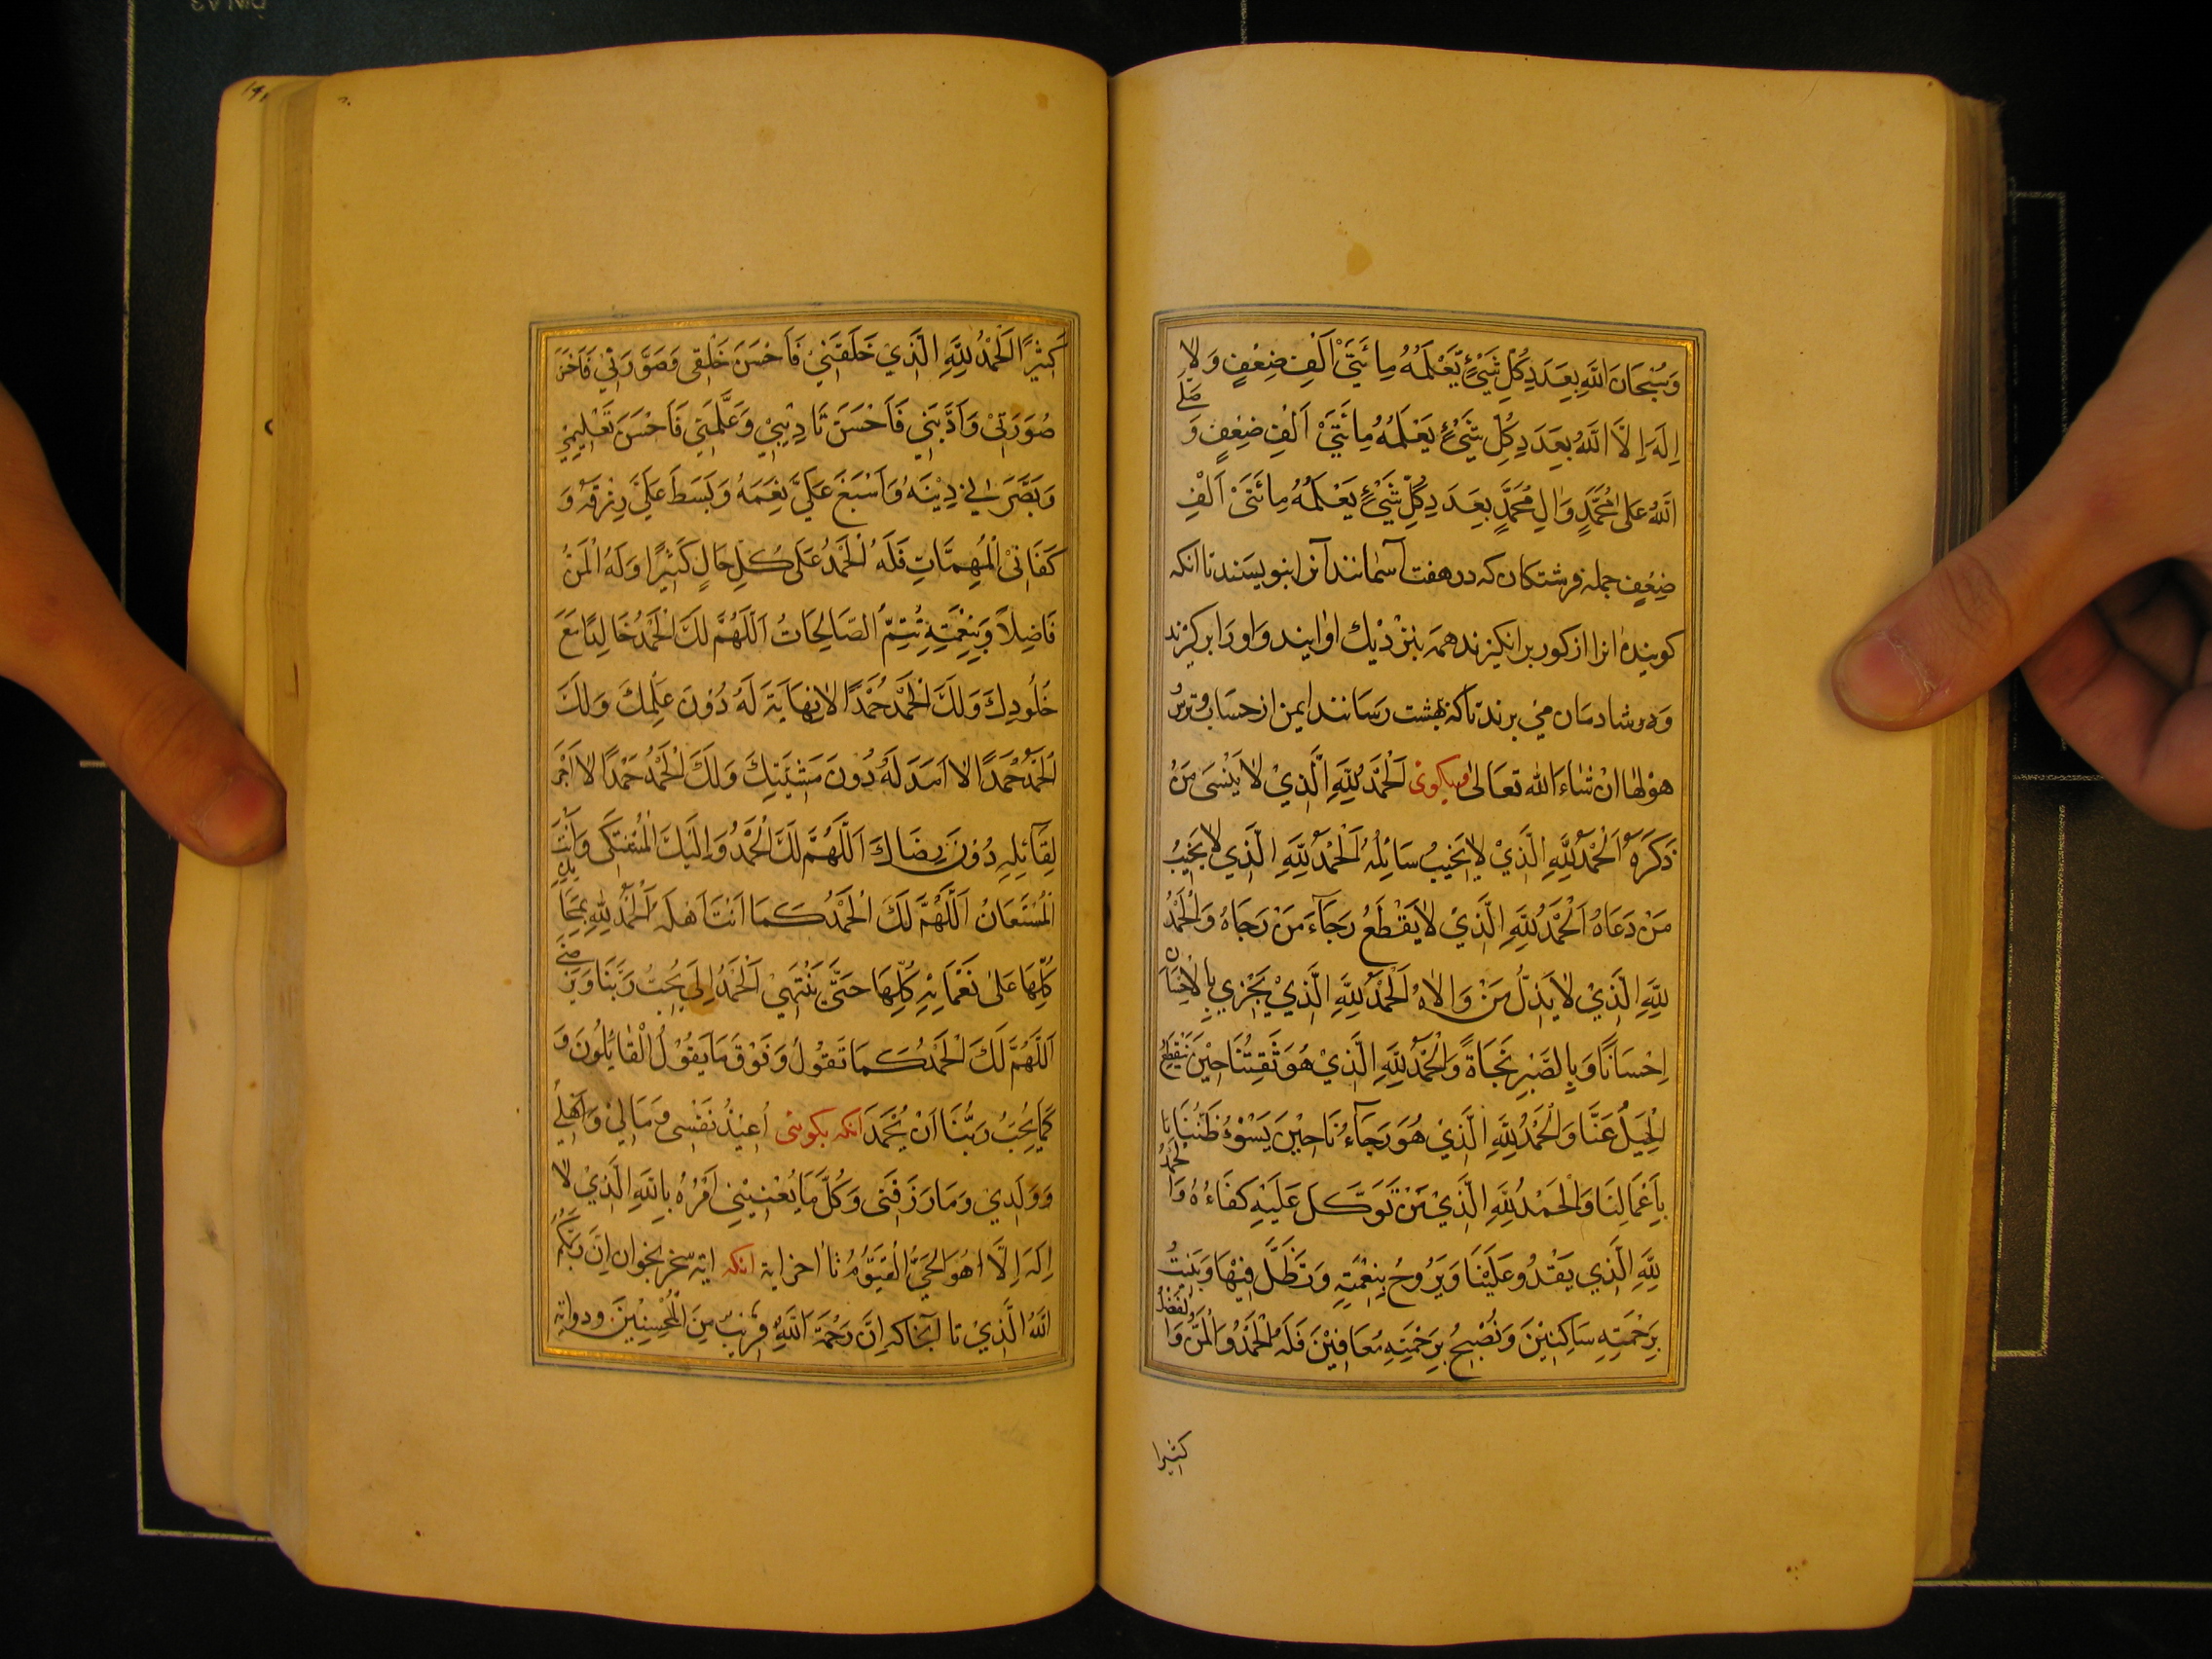 وَسُبْحَانَ اللّٰهِ بِعَدَدِ كُلِّ شَيْءٍ يَّعْلَمُهُ مِائَتَيْ اَلْفِ ضِعْفٍ وَلَا
اِلٰهَ اِلَّا اللّٰهُ بِعَدَدِ كُلِّ شَيْءٍ يَعْلَمُهُ مِائَتَيْ اَلْفِ ضِعْفٍ وَ صَلَّى
اللّٰهُ عَلٰى مُحَمَّدٍ وَاٰلِ مُحَمَّدٍ بِعَدَدِ كُلِّ شَيْءٍ يَعْلَمُهُ مِائَتَيْ اَلْفِ
ضِعْفٍ جمله فرشتكان كه در هفت آسمانند آنرا بنويسند تا انكه
كوينده انرا از كور بر انكيزند همه بنزديك او ايند و او را بر كيرند
و شادمان مي برند تا كه بهشت رسانند ايمن از حساب و ترس
هولها ان شاء الله تعالى اَلْحَمْدُ لِلّٰهِ الَّذِيْ لَا يَنْسَى مَنْ
ذَكَرَهُ اَلْحَمْدُ لِلّٰهِ الَّذِيْ لَا يَخِيْبُ سَائِلُهُ اَلْحَمْدُ لِلّٰهِ الَّذِي لَا يَخِيْبُ
مَنْ دَعَاهُ اَلْحَمْدُ لِلّٰهِ الَّذِيْ لَا يَقْطَعُ رَجَآءَ مَنْ رَجَاهُ وَالْحَمْدُ
لِلّٰهِ الَّذِيْ لَا يَذِلُّ مَنْ وَالَاهُ اَلْحَمْدُ لِلّٰهِ الَّذِيْ يَجْزِي بِالْاِحْسَانِ
اِحْسَانًا وَبِالصَّبْرِ نَجَاةً وَالْحَمْدُ لِلّٰهِ الَّذِيْ هُوَ ثِقَتُنَا حِيْنَ يَنْقَطِعُ
الْحِيَلُ عَنَّا وَالْحَمْدُ لِلّٰهِ الَّذِيْ هُوَ رَجَآءُنَا حِيْنَ يَسُوْءُ ظَنُّنَا
بِاَعْمَالِنَا وَالْحَمْدُ لِلّٰهِ الَّذِيْ مَنْ تَوَكَّلَ عَلَيْهِ كَفَاهُ وَالْحَمْدُ
لِلّٰهِ الَّذِي يَغْدُو عَلَيْنَا وَيَرُوحُ بِنِعْمَتِهِ وَنَظَلُّ فِيْهَا وَنَبِيْتُ
بِرَحْمَتِهِ سَاكِنِيْنَ وَنُصْبِحُ بِرَحْمَتِهِ مُعَافِيْنَ فَلَهُ الْحَمْدُ وَالْمَنُّ وَالْفَضْلُ
كثيرا
كَثِيْرًا اَلْحَمْدُ لِلّٰهِ الَّذِيْ خَلَقَنِيْ فَاَحْسَنَ خَلْقِى وَصَوَّرَنِيْ فَاَحْسَنَ
صُوْرَتِىْ وَاَدَّبَنِي فَاَحْسَنَ تَادِيْبِيْ وَعَلَّمَنِي فَاَحْسَنَ تَعْلِيْمِيْ
وَبَصَّرَنِي دِيْنَهُ وَاَسْبَغَ عَلَيَّ نِعَمَهُ وَبَسَطَ عَلَيَّ رِزْقَهُ وَ
كَفَانِىْ الْمُهِمَّاتِ فَلَهُ الْحَمْدُ عَلَى كُلِّ حَالٍ كَثِيْرًا وَلَهُ الْمَنُّ
فَاضِلًا وَبِنِعْمَتِهِ تُتِمُّ الصَّالِحَاتُ اَللّٰهُمَّ لَكَ الْحَمْدُ خَالِدًا مَعَ
خُلُودِكَ وَلَكَ الْحَمْدُ حَمْدًا لَا نِهَايَةَ لَهُ دُوْنَ عِلْمِكَ وَلَكَ
الْحَمْدُ حَمْدًا لَا اَمَدَ لَهُ دُوْنَ مَشِيَّتِكَ وَلَكَ الْحَمْدُ حَمْدًا لَا اَجْرَ
لِقَآئِلِهِ دُوْنَ رِضَاكَ اَللّٰهُمَّ لَكَ الْحَمْدُ وَاِلَيْكَ الْمُشْتَكٰى وَاَنْتَ
الْمُسْتَعَانُ اَللّٰهُمَّ لَكَ الْحَمْدُ كَمَا اَنْتَ اَهْلُهُ اَلْحَمْدُ لِلّٰهِ بِمَحَامِدِهِ
كُلِّهَا عَلٰى نَعْمَائِهِ كُلِّهَا حَتَّى يَنْتَهِيَ الْحَمْدُ اِلَى يُحِبُّ رَبُّنَا وَيَرْضَى
اَللّٰهُمَّ لَكَ الْحَمْدُ كَمَا تَقُوْلُ وَفَوْقَ مَا يَقُوْلُ الْقَائِلُوْنَ وَ
كَمَا يُحِبُّ رَبُّنَا اَنْ يُحْمَدَ انكه بكوئى اُعِيْذُ نَفْسِى وَمَالِيْ وَاَهْلِيْ
وَوَلَدِي وَمَا رَزَقَنِى وَكُلَّ مَا يُعْنِيْنِي اَمْرُهُ بِاللّٰهِ الَّذِيْ لَا
اِلٰهَ اِلَّا هُوَ الْحَيُّ الْقَيُّوْمُ تا اخر اية انكه اية سخره بخوان اِنَّ رَبَّكُمُ
اللّٰهُ الَّذِيْ تا آنجا كه اِنَّ رَحْمَةَ اللّٰهِ قَرِيْبٌ مِنَ الْمُحْسِنِيْنَ